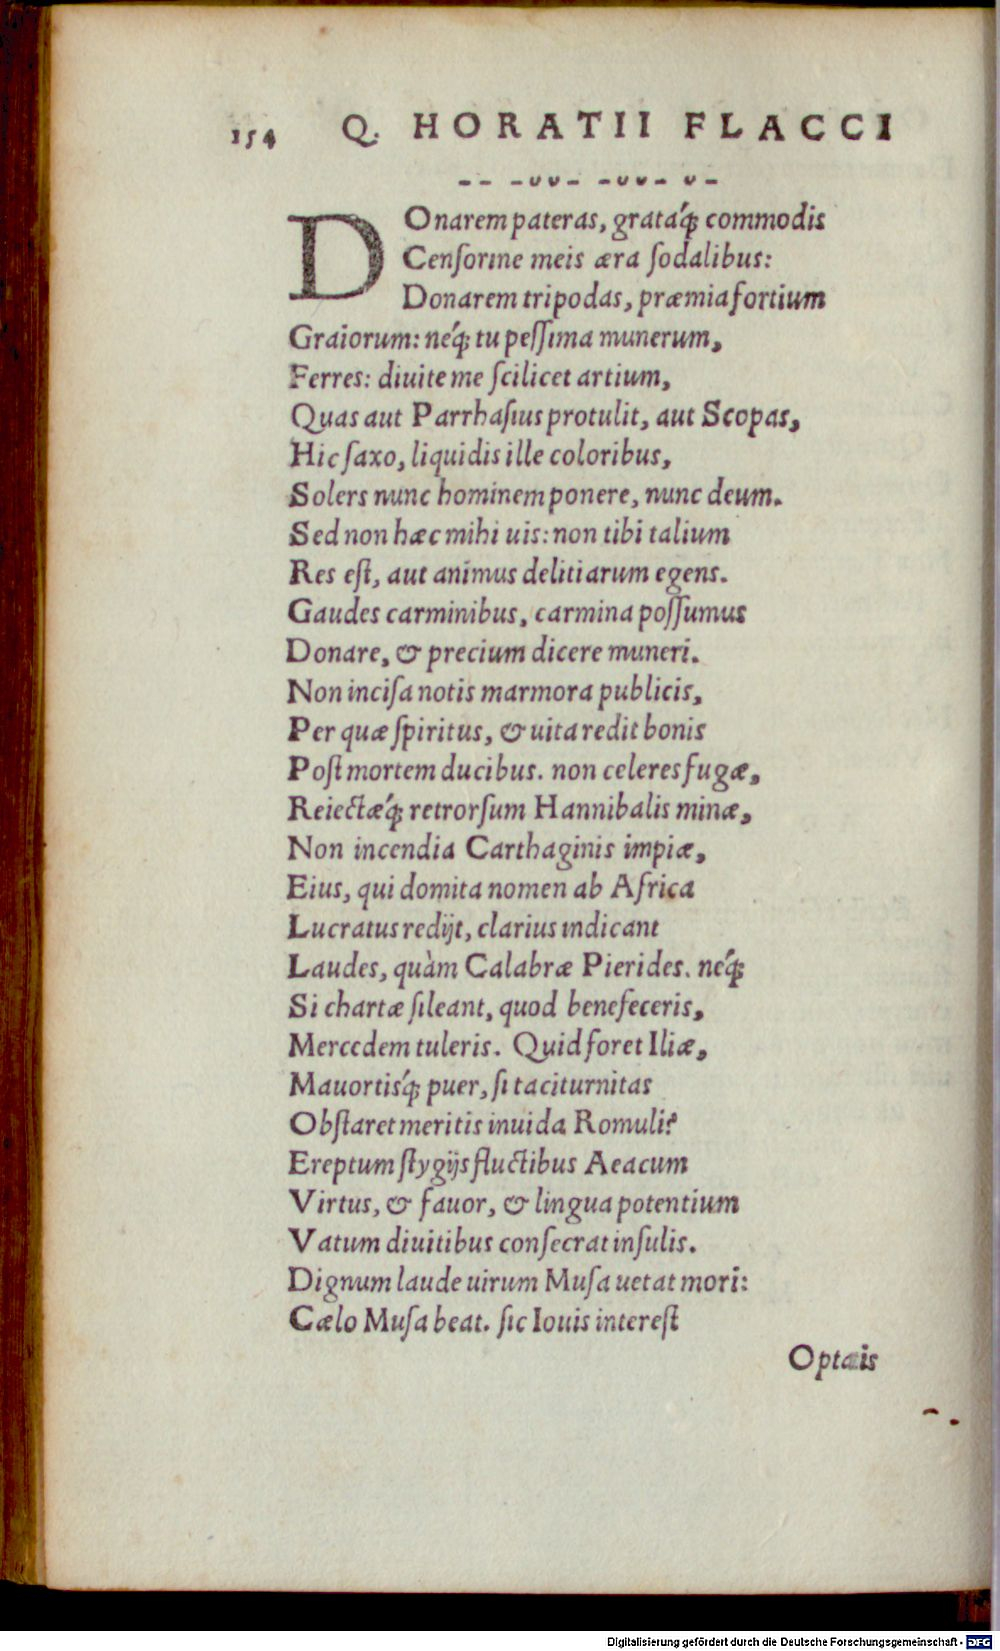 154 Q. HORATII FLACCI
-- -ᴗᴗ- -ᴗᴗ- ᴗ-
DOnarem pateras, gratáq; commodis
Cenſorine meis æra ſodalibus:
Donarem tripodas, præmia fortium
Graiorum: neq́; tu peſſima munerum,
Ferres: diuite me ſcilicet artium,
Quas aut Parrhaſius protulit, aut Scopas,
Hic ſaxo, liquidis ille coloribus,
Solers nunc hominem ponere, nunc deum.
Sed non hæc mihi uis: non tibi talium
Res eſt, aut animus delitiarum egens.
Gaudes carminibus, carmina poſſumus
Donare, & precium dicere muneri.
Non inciſa notis marmora publicis,
Per quæ ſpiritus, & uita redit bonis
Poſt mortem ducibus. non celeres fugæ,
Reiectæq́; retrorſum Hannibalis minæ,
Non incendia Carthaginis impiæ,
Eius, qui domita nomen ab Africa
Lucratus redijt, clarius indicant
Laudes, quàm Calabræ Pierides. neq́;
Si chartæ ſileant, quod benefeceris,
Mercedem tuleris. Quid foret Iliæ,
Mauortisq́; puer, ſi taciturnitas
Obſtaret meritis inuida Romuli?
Ereptum ſtygijs fluctibus Aeacum
Virtus, & fauor, & lingua potentium
Vatum diuitibus conſecrat inſulis.
Dignum laude uirum Muſa uetat mori:
Cælo Muſa beat. ſic Iouis intereſt
Optatis
Digitalisierung gefördert durch die Deutsche Forschungsgemeinschaft - DFG